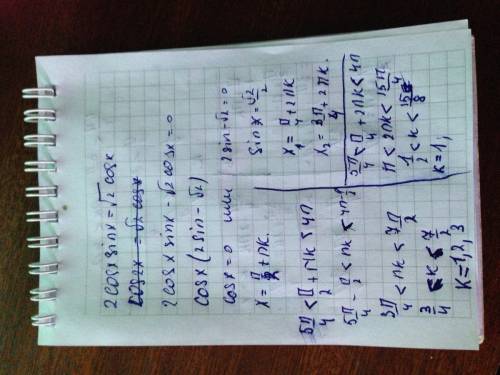 2cosx sinx = √2 cosx
cos2x = √2 cosx
2cosx sinx - √2 cosx = 0
cosx (2sin - √2)
cosx = 0 или 2sin - √2 = 0
x = π/2 + πk. sinx = √2/2
x₁ = π/4 + 2πk
x₂ = 3π/4 + 2πk.
5π/4 < π/2 + πk < 4π
5π/4 - π/2 < πk < 4π - π/2
3π/4 < πk < 7π/2
3/4 < k < 7/2
k = 1, 2, 3
5π/4 < π/4 + 2πk < 4π
π < 2πk < 15π/4
1/2 < k < 15/8
k = 1;